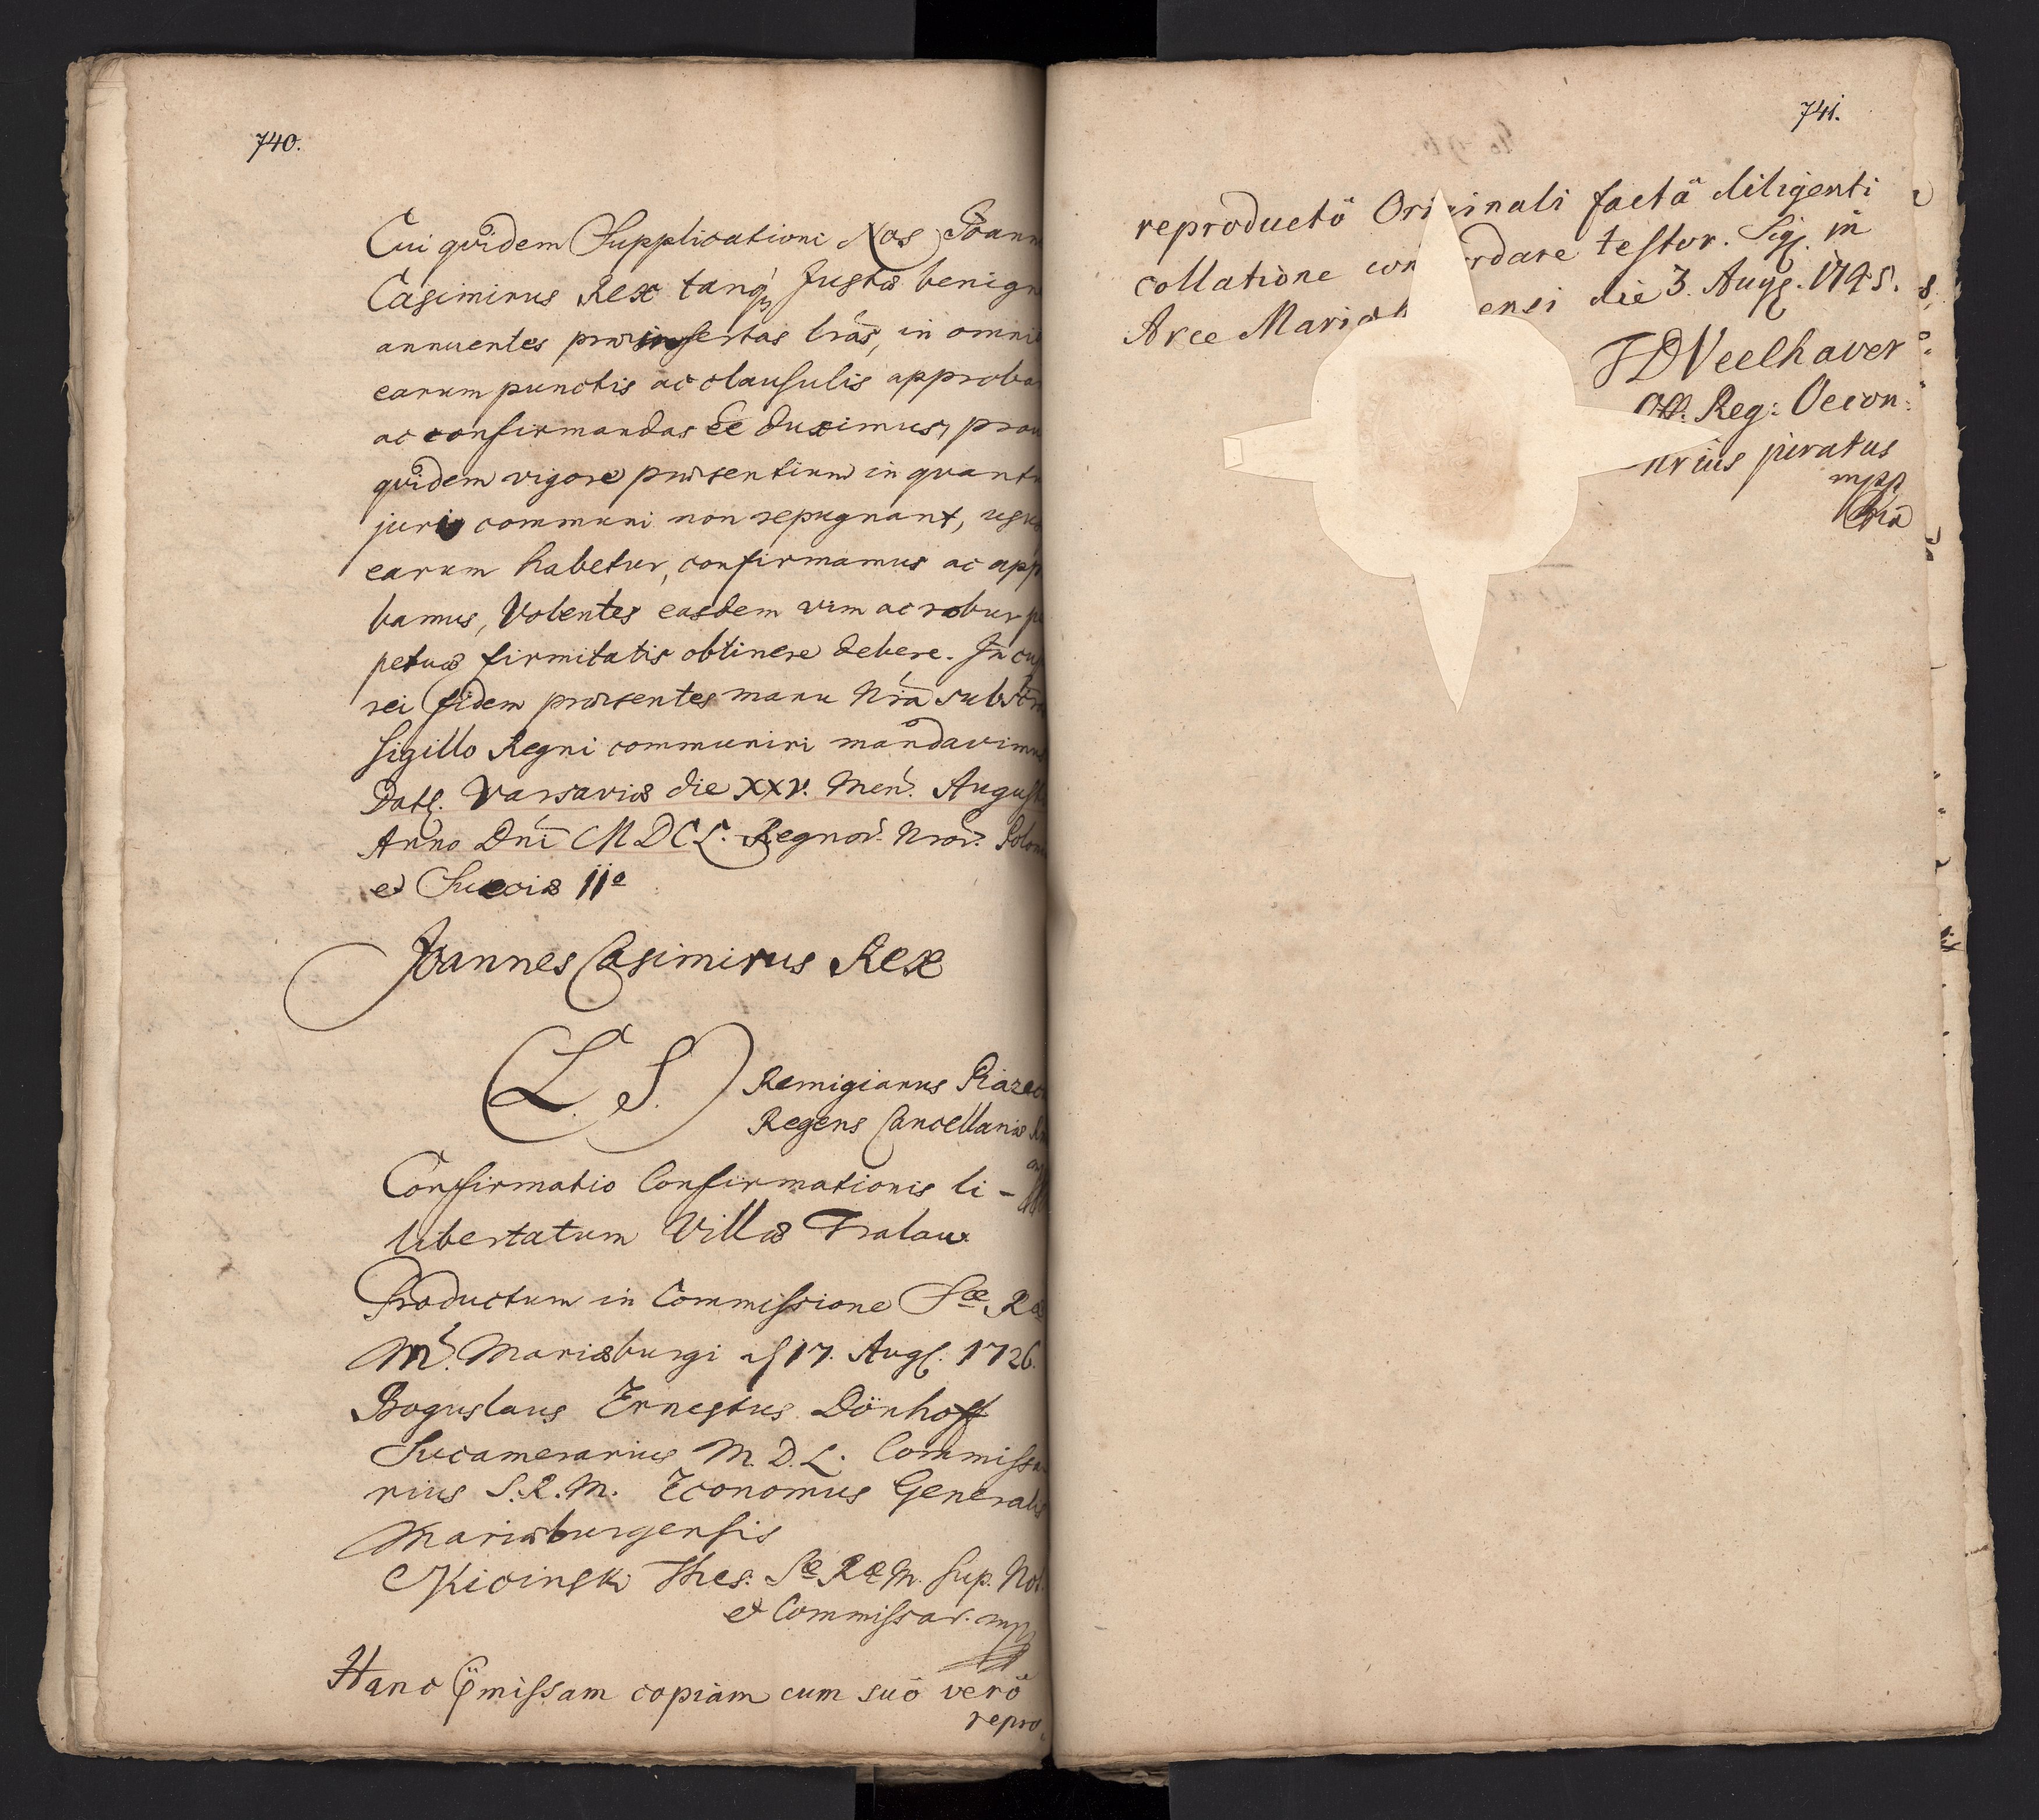 740.
Cui quidem Supplicationi Nos Joann
Casimirus Rex tanq̃ Justæ benign
annuentes præinsertas lrãs, in omni
earum punctis ac clausulis approba
ac confirmandas Ee duximus, prou
quidem vigore præsentium in quantu
juri communi non repugnant, usus
earum habetur, confirmamus ac app
bamus, Volentes easdem vim ac robur p
petuæ firmitatis obtinere debere. In cuj
rei fidem præsentes manu Nrã
Sigillo Regni communiri mandavimus
Datt. Varsaviæ die XXV. Men. Augusti
Anno Dni MDCL. Regnor. Nror. Polon
et Sueciæ IIo
Joannes Casimirus Rex
(L. S.) Remigianus Piazec
Regens Cancellariæ
Confirmatio Confirmationis li-
libertatum Villæ Tralau
Productum in Commissione Sæ. Ræ
M. Mariæburgi d 17. Augt. 1726.
Boguslaus Ernestus Dönhoff
Sucamerarius M. D. L. Commissa
rius S. R. M. Economus Generalis
Mariæburgensis
Kicinski Thes: Sæ Ræ M. Sup. Not.
et Commissar. mp
Hanc præmissam copiam cum suô verô
repro
741.
reproductô Originali factâ diligenti
collatione con rdare testor. Sig. in
Arce Mari ensi die 3. Augt. 1745.
Veelhaver
Off. Reg: Oecon:
arius juratus
mpp